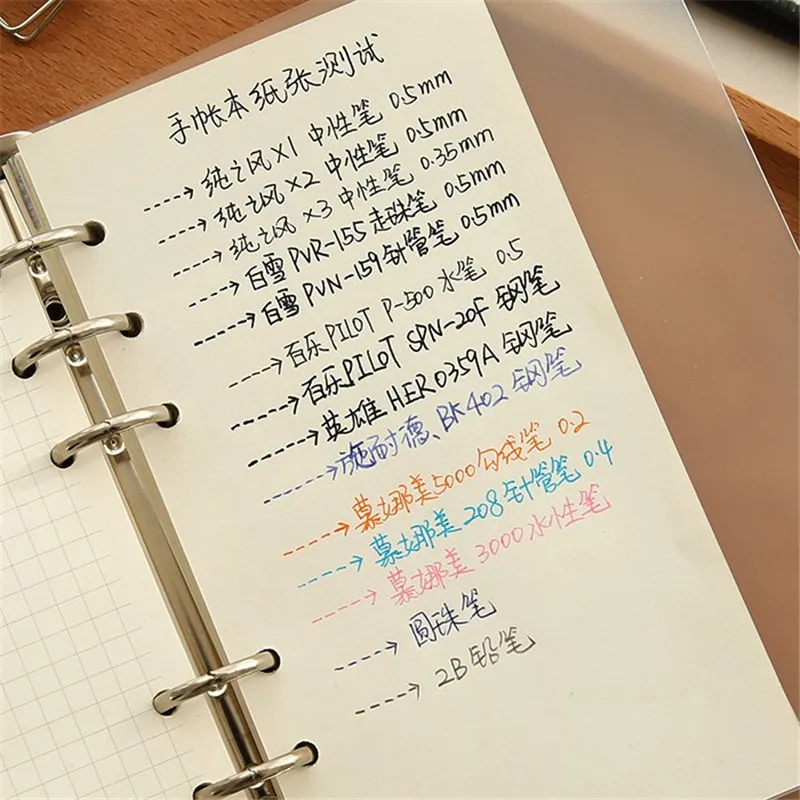 手帐本纸张测试
纯之风×1 中性笔 0.5mm
纯之风×2 中性笔 0.5mm
纯之风×3 中性笔 0.35mm
白雪PVR-155走珠笔 0.5mm
白雪PVN-159针管笔 0.5mm
百乐PILOT P-500 水笔 0.5
百乐PILOT SPN-20F 钢笔
英雄HERO359A 钢笔
施耐德、BK402 钢笔
慕娜美5000勾线笔 0.2
慕娜美208针管笔 0.4
慕娜美3000水性笔
圆珠笔
2B铅笔